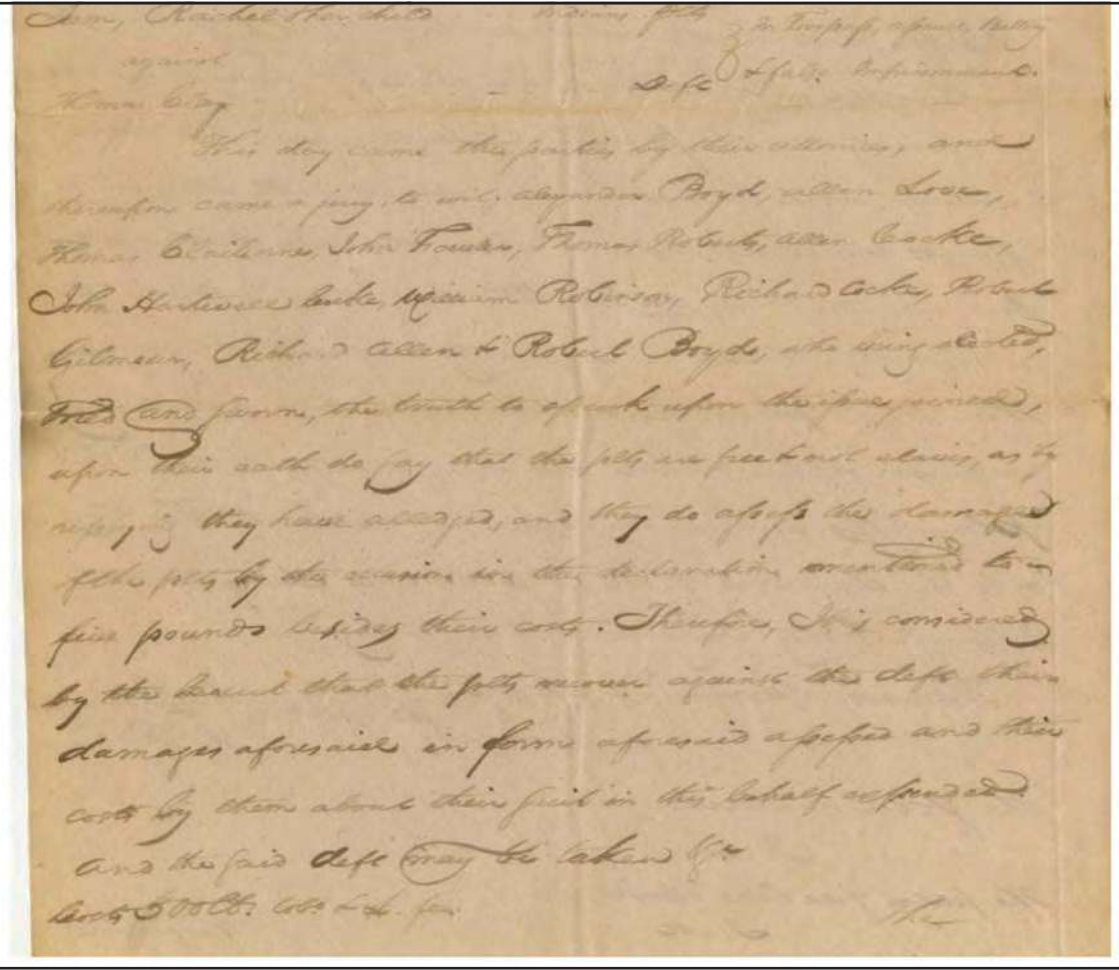 Sam, Rachel & her child Indians plts
In Trespass, assault, battery
against
Deft & false Imprisonment.
Thomas Clay
This day came the parties by their attornies, and
thereupon came a jury, to wit, Alexander Boyd, Allen Love,
Thomas Claiborne, John Fowler, Thomas Roberts, Allen Cocke,
John Hartwell Cocke, William Robinson, Richard Cocke, Robert
Gilmour, Richard Allen & Robert Boyd, who being elected,
tried and sworn, the truth to speak upon the issue joined,
upon their oath do say that the plts are free & not slaves, as by
replying they have alledged, and they do assess the damages
of the plts by the occasion in the declaration mentioned to
five pounds besides their costs. Therefore, It is considered
by the Court that the plts recover against the deft their
damages aforesaid in form aforesaid assessed and their
costs by them about their suit in this behalf expended
And the said deft may be taken &c
Costs
The